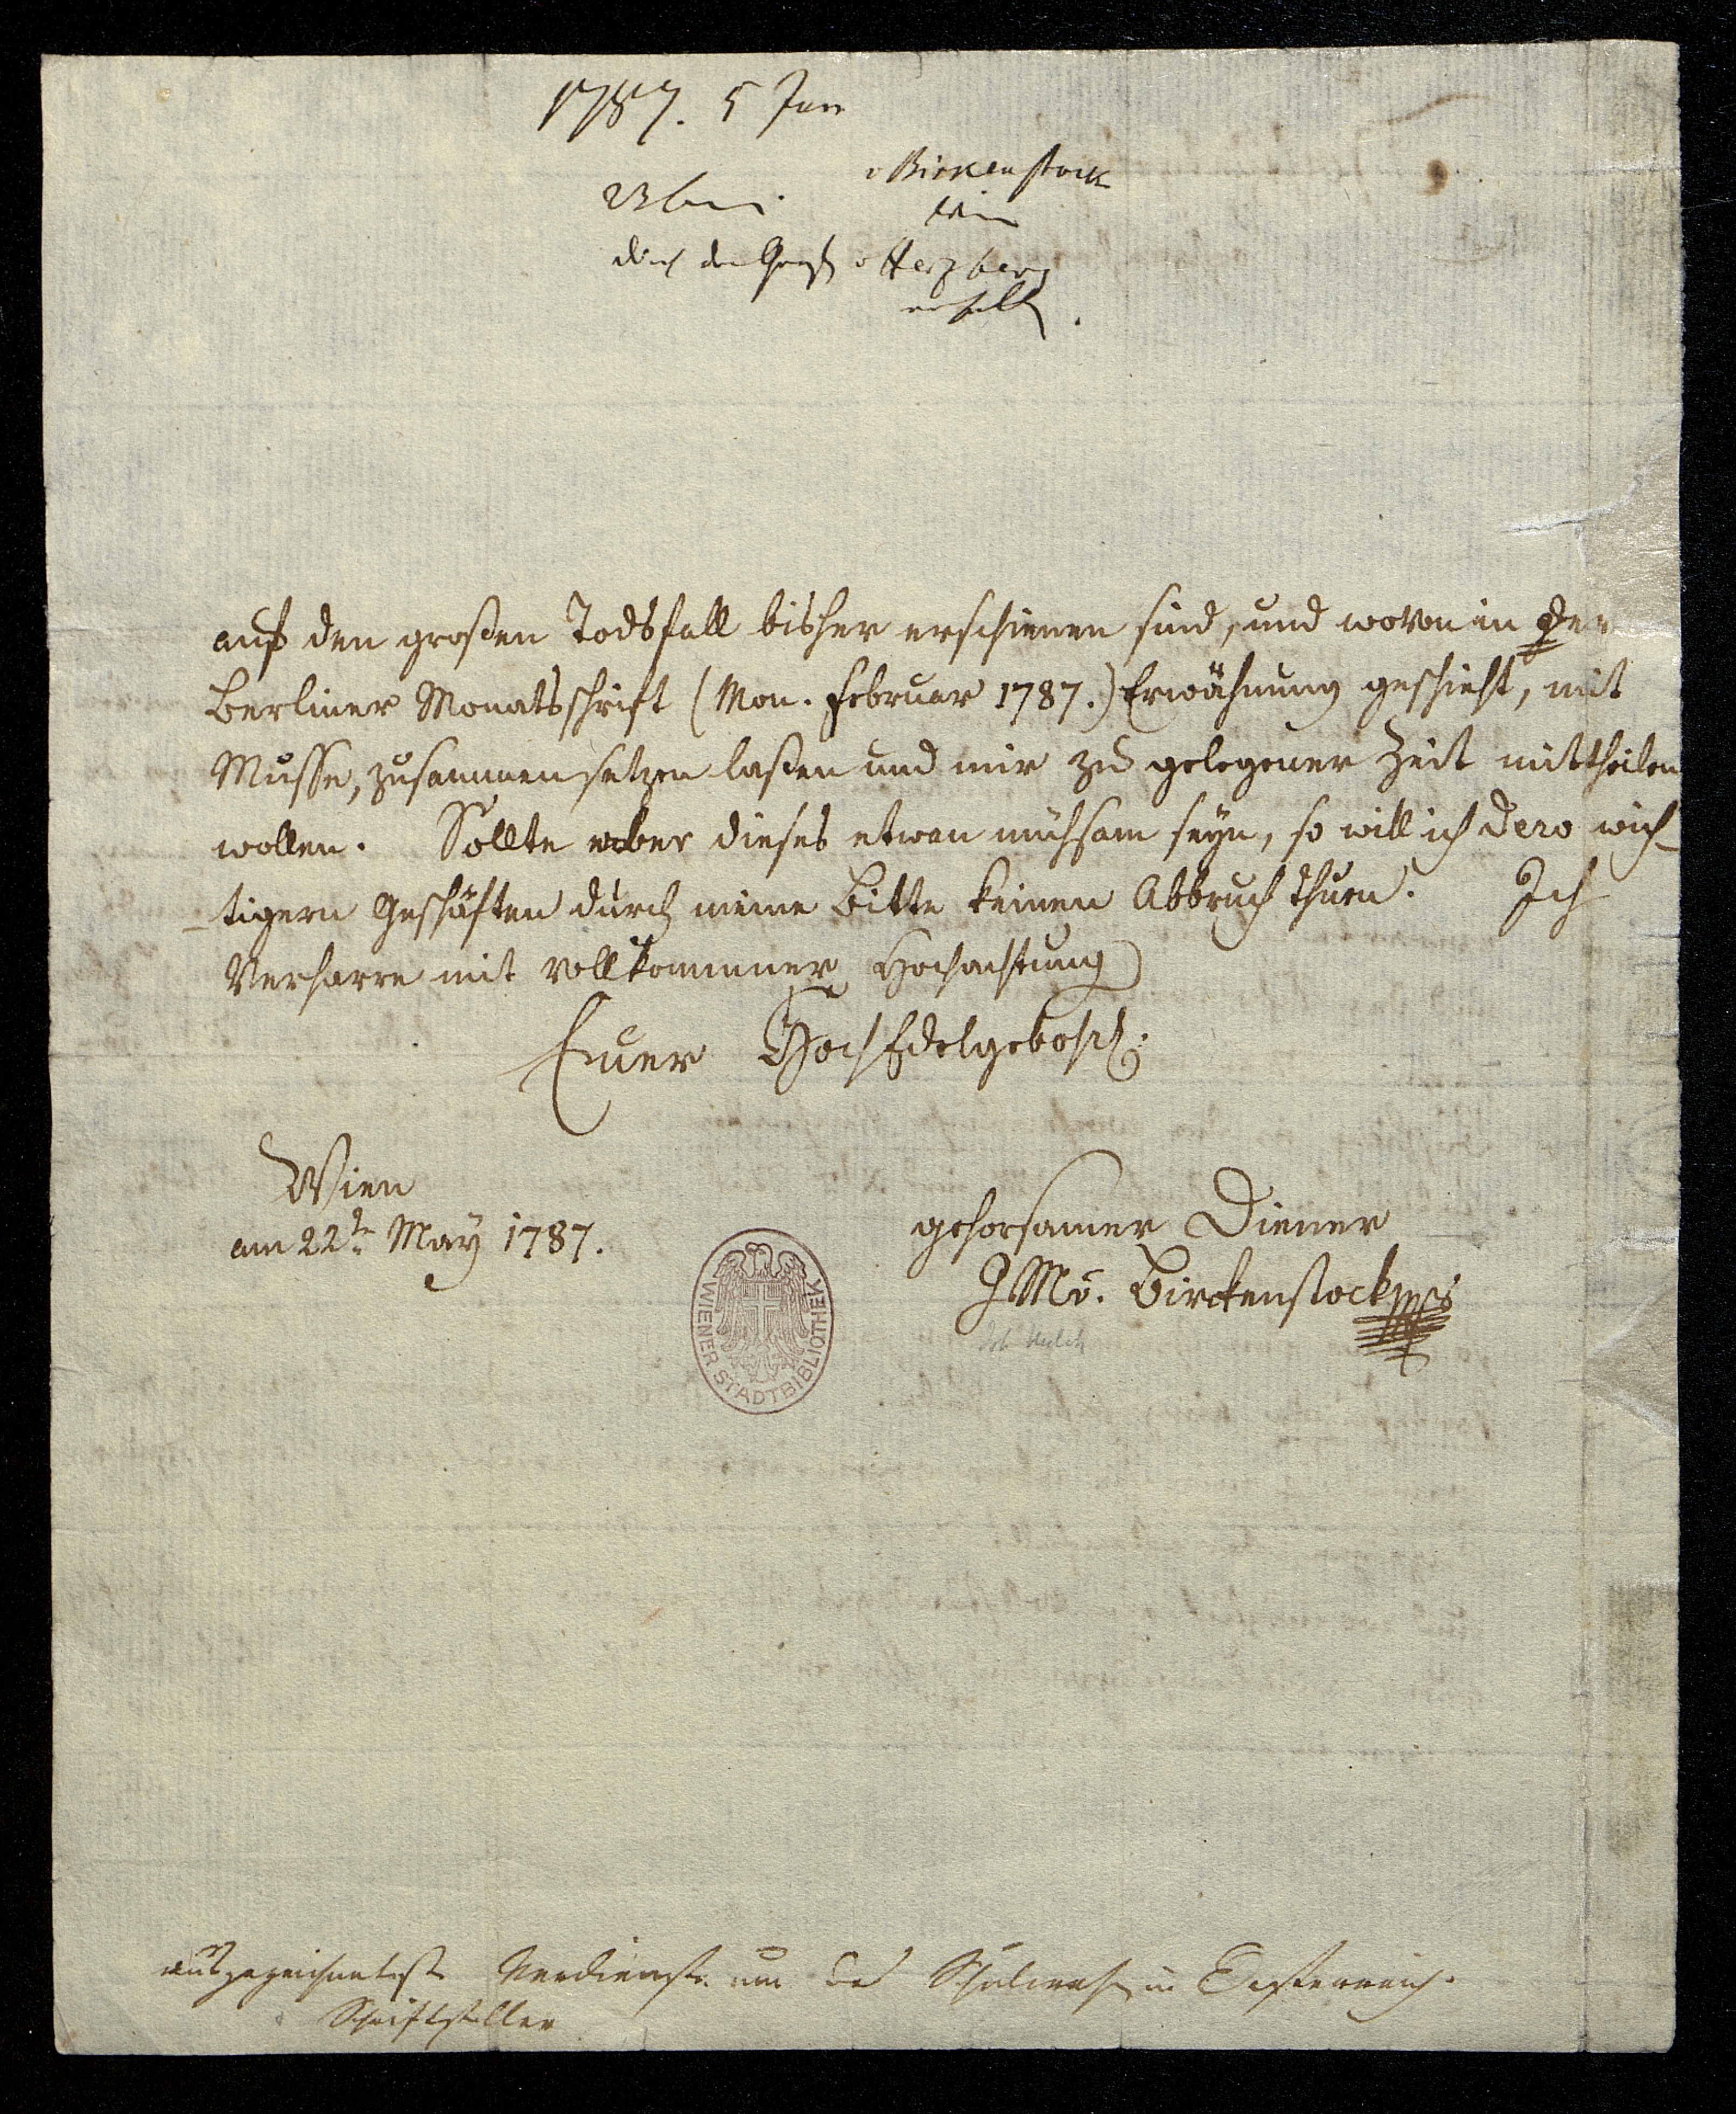 1787. 5 Jun
v Birkenstock
Wien
durch den Graf v Herzberg
erhalt.
auf den großen Todsfall bisher erschienen sind, und wovon in der
Berliner Monatsschrift (Mon. Februar 1787.) Erwähnung geschieht, mit
Musse, zusammen setzen laßen und mir zu gelegener Zeit mittheilen
wollen. Sollte aber dieses etwan mühsam seyn, so will ich dero wich-
-tigern Geschäften durch meine Bitte keinen Abbruch thuen. Ich
Verharre mit vollkommner Hochachtung
Euer HochEdelgebohr:
Wien
am 22t May 1787.
gehorsamer Diener
J Mv. Birckenstock
Joh Melch
WIENER STADTBIBLIOTHEK
ausgezeichnetste Verdienste um das Schulwesen in Oesterreich.
Schriftsteller